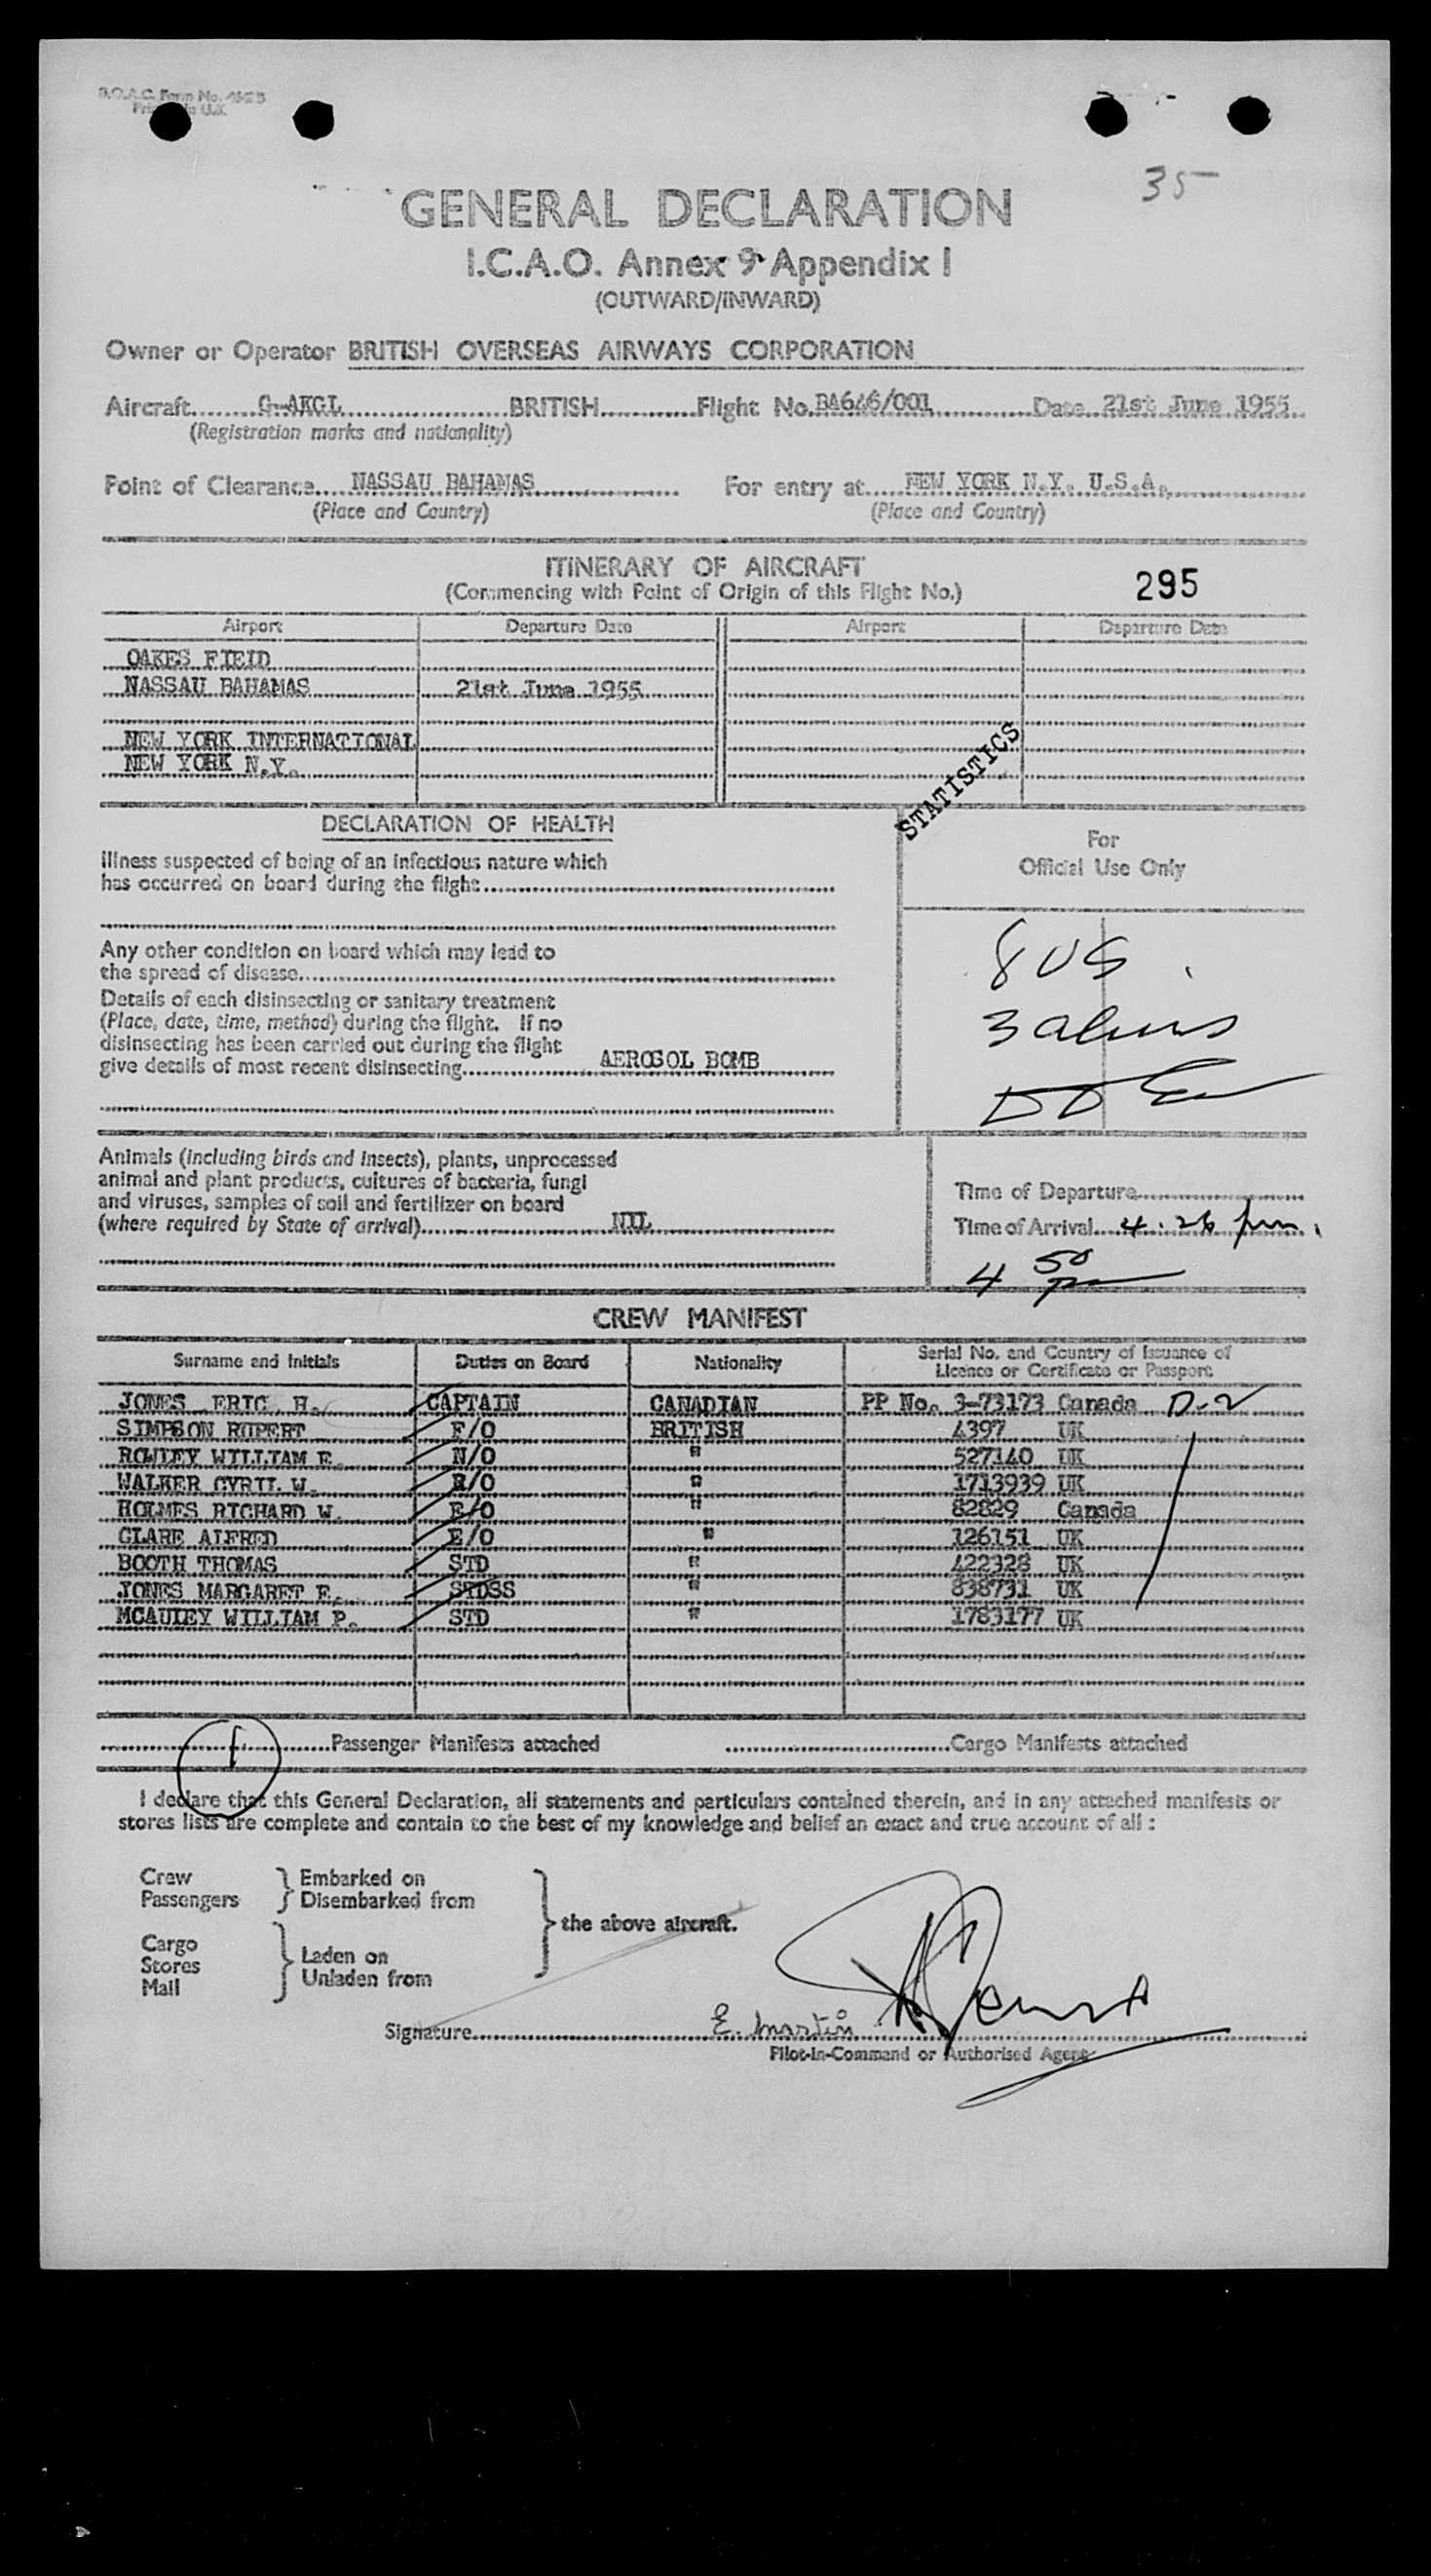 B.O.A.C. Form No.
Printed in U.K.
35
GENERAL DECLARATION
I.C.A.O. Annex 9 Appendix I
(OUTWARD/INWARD)
Owner or Operator BRITISH OVERSEAS AIRWAYS CORPORATION
Aircraft G-AKGL BRITISH Flight No. BA646/001 Date 21st June 1955
(Registration marks and nationality)
Point of Clearance NASSAU BAHAMAS For entry at NEW YORK N.Y. U.S.A.
(Place and Country) (Place and Country)
ITINERARY OF AIRCRAFT
(Commencing with Point of Origin of this Flight No.) 295
Airport Departure Date Airport Departure Date
OAKES FIELD
NASSAU BAHAMAS 21st June 1955
NEW YORK INTERNATIONAL
NEW YORK N.Y.
STATISTICS
DECLARATION OF HEALTH
For
Official Use Only
Illness suspected of being of an infectious nature which
has occurred on board during the flight
Any other condition on board which may lead to
the spread of disease
Details of each disinsecting or sanitary treatment
(Place, date, time, method) during the flight. If no
disinsecting has been carried out during the flight
give details of most recent disinsecting AEROSOL BOMB
8 US
3 aliens
Animals (including birds and insects), plants, unprocessed
animal and plant products, cultures of bacteria, fungi
and viruses, samples of soil and fertilizer on board
(where required by State of arrival) NIL
Time of Departure
Time of Arrival 4.26 pm.
4 50 pm
CREW MANIFEST
Surname and Initials Duties on Board Nationality Serial No. and Country of Issuance of
Licence or Certificate or Passport
JONES ERIC H. CAPTAIN CANADIAN PP No. 3-73173 Canada D-2
SIMPSON RUPERT F/O BRITISH 4397 UK
ROWLEY WILLIAM E. N/O " 527140 UK
WALKER CYRIL W. R/O " 1713939 UK
HOLMES RICHARD W. E/O " 82829 Canada
CLARE ALFRED E/O " 126151 UK
BOOTH THOMAS STD " 422328 UK
JONES MARGARET E. STDSS " 838731 UK
MCAULEY WILLIAM P. STD " 1783177 UK
1 Passenger Manifests attached Cargo Manifests attached
I declare that this General Declaration, all statements and particulars contained therein, and in any attached manifests or
stores lists are complete and contain to the best of my knowledge and belief an exact and true account of all :
Crew Embarked on
Passengers Disembarked from
the above aircraft.
Cargo
Stores Laden on
Mail Unladen from
Signature E. Martin
Pilot-in-Command or Authorised Agent